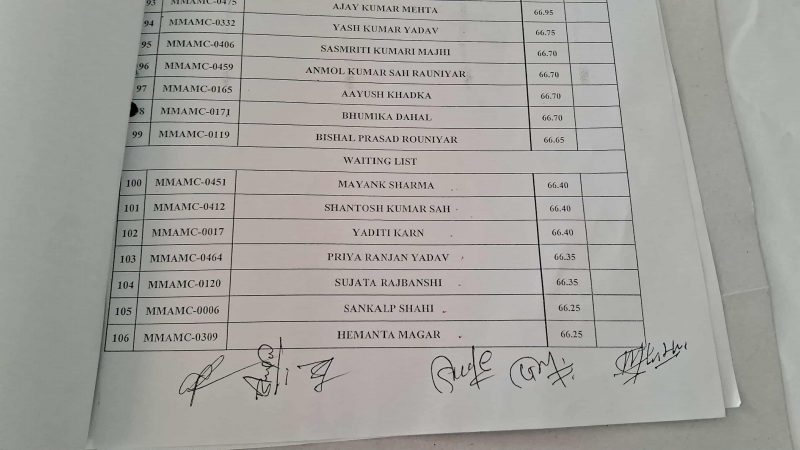 93 MMAMC-0475 AJAY KUMAR MEHTA 66.95
94 MMAMC-0332 YASH KUMAR YADAV 66.75
95 MMAMC-0406 SASMRITI KUMARI MAJHI 66.70
96 MMAMC-0459 ANMOL KUMAR SAH RAUNIYAR 66.70
97 MMAMC-0165 AAYUSH KHADKA 66.70
8 MMAMC-0171 BHUMIKA DAHAL 66.70
99 MMAMC-0119 BISHAL PRASAD ROUNIYAR 66.65
WAITING LIST
100 MMAMC-0451 MAYANK SHARMA 66.40
101 MMAMC-0412 SHANTOSH KUMAR SAH 66.40
102 MMAMC-0017 YADITI KARN 66.40
103 MMAMC-0464 PRIYA RANJAN YADAV 66.35
104 MMAMC-0120 SUJATA RAJBANSHI 66.35
105 MMAMC-0006 SANKALP SHAHI 66.25
106 MMAMC-0309 HEMANTA MAGAR 66.25